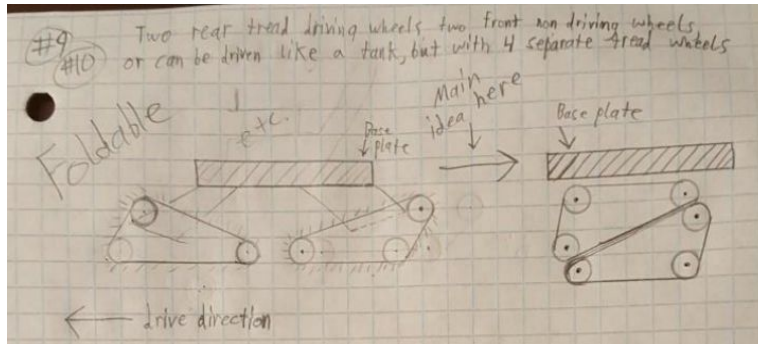 #9 Two rear tread driving wheels two front non driving wheels
#10 or can be driven like a tank, but with 4 separate tread wheels
Foldable
etc.
Base plate
Main idea here
Base plate
drive direction